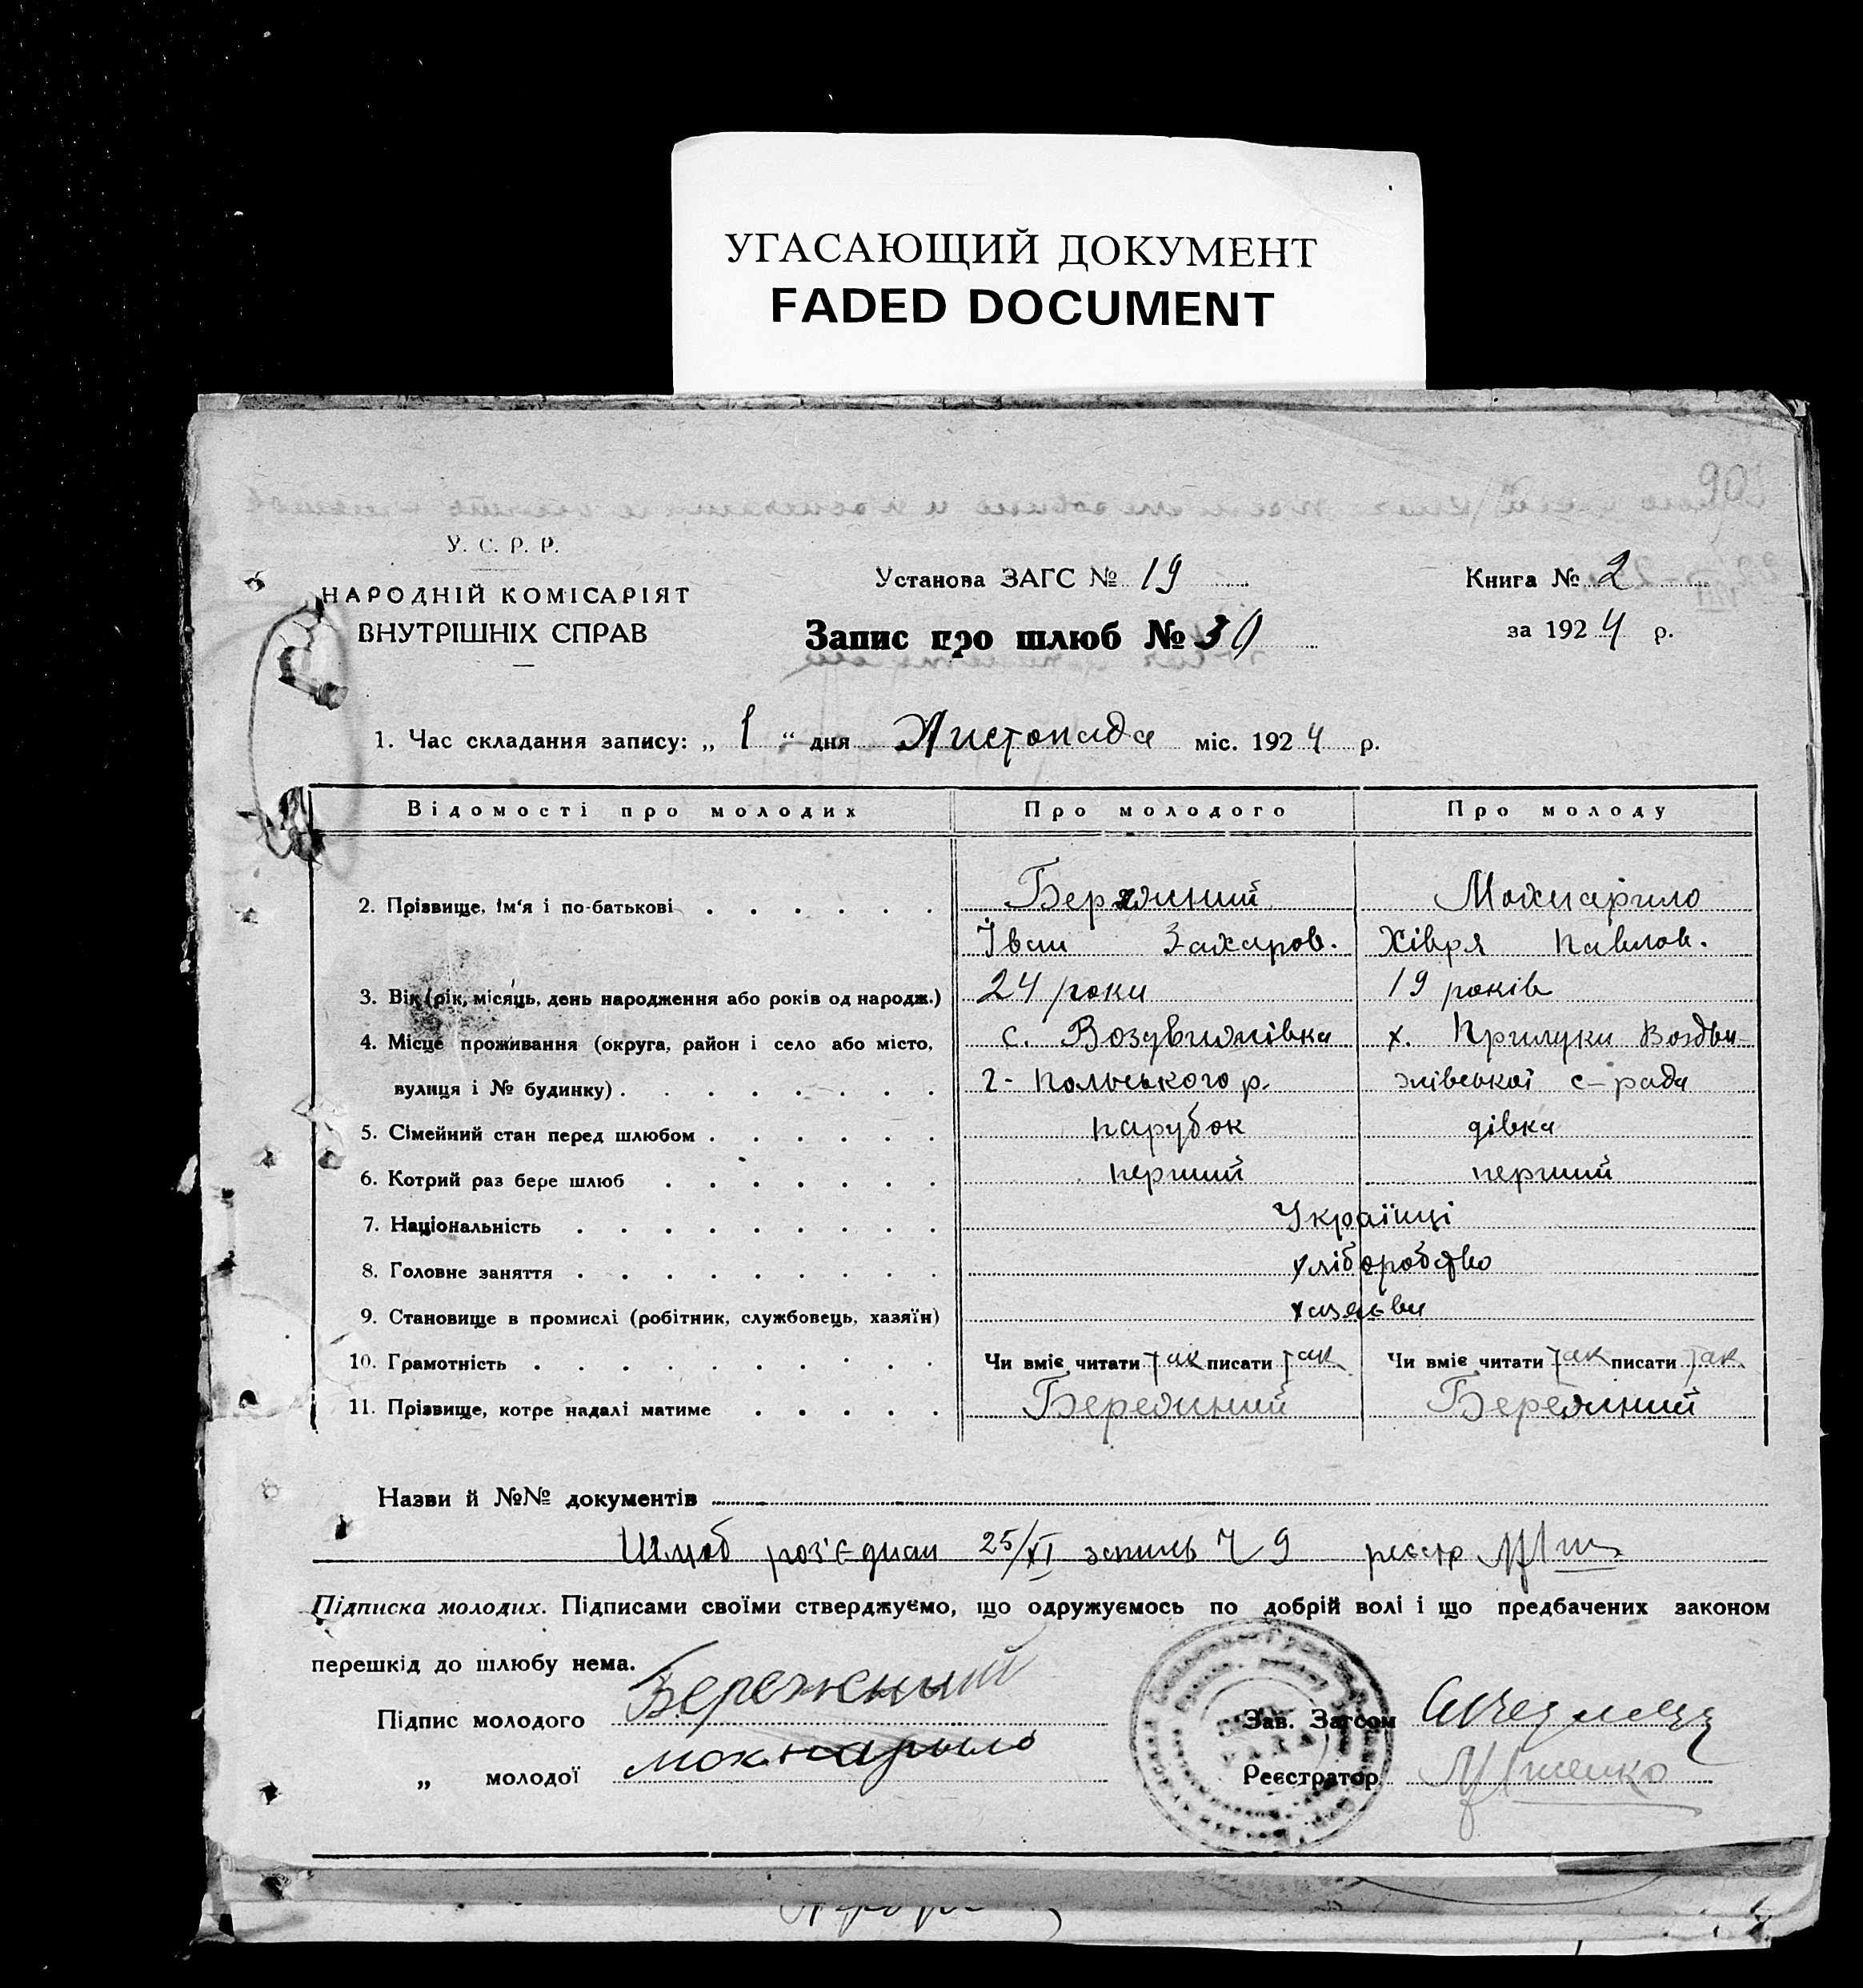 УГАСАЮЩИЙ ДОКУМЕНТ
FADED DOCUMENT
90
У. С. Р. Р.
НАРОДНІЙ КОМІСАРІЯТ
ВНУТРІШНІХ СПРАВ
Установа ЗАГС № 19
Книга № 2
Запис про шлюб № 30
за 1924 р.
1. Час складання запису: „ 1 “ дня Листопада міс. 1924 р.
Відомості про молодих Про молодого Про молоду
2. Прізвище, ім'я і по-батькові Бережний Мохнарило
Іван Захаров. Хівря Павлов.
3. Вік (рік, місяць, день народження або років од народж.) 24 роки 19 років
4. Місце проживання (округа, район і село або місто, с. Воздвижівка х. Прилуки Воздви-
вулиця і № будинку) Г-Польського р. жівської с-рада
5. Сімейний стан перед шлюбом парубок дівка
6. Котрий раз бере шлюб перший перший
7. Національність Українці
8. Головне заняття хліборобство
9. Становище в промислі (робітник, службовець, хазяїн) хазяєви
10. Грамотність Чи вміє читати так писати так Чи вміє читати так писати так
11. Прізвище, котре надалі матиме Бережний Бережний
Назви й №№ документів
Шлюб роз'єднан 25/XI запись Ч 9 реєстр
Підписка молодих. Підписами своїми стверджуємо, що одружуємось по добрій волі і що предбачених законом
перешкід до шлюбу нема.
Підпис молодого Бережный Зав. Загсом
„ молодої мохнарыло Реєстратор